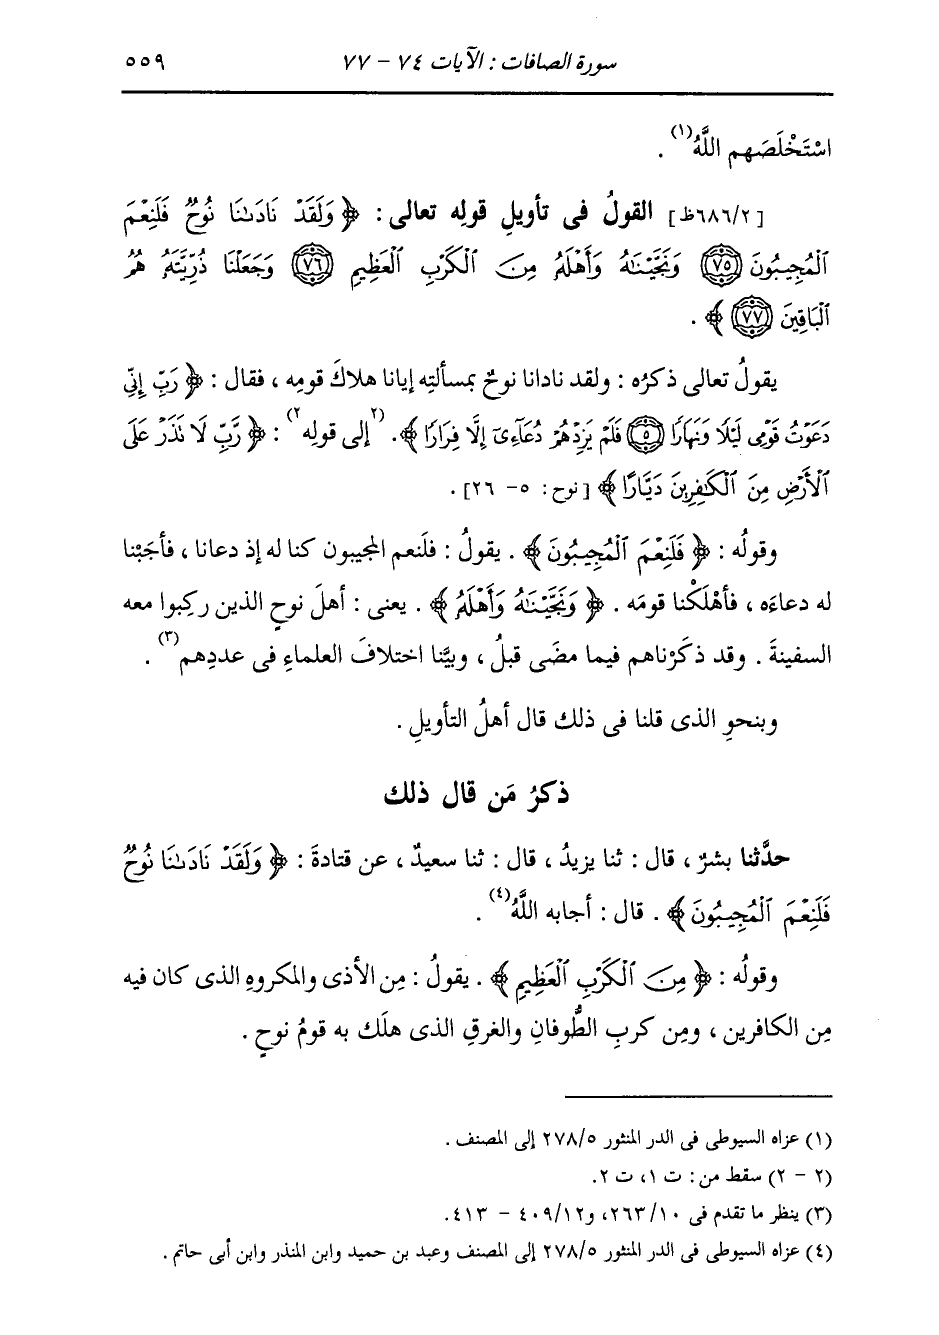 سورة الصافات : الآيات ٧٤ - ٧٧ ٥٥٩
اسْتَخْلَصَهم اللَّهُ(١) .
[٦٨٦/٢ظ] القولُ فى تأويلِ قولِه تعالى : ﴿ وَلَقَدْ نَادَىٰنَا نُوحٌ فَلَنِعْمَ
ٱلْمُجِيبُونَ ﴿٧٥﴾ وَنَجَّيْنَٰهُ وَأَهْلَهُ مِنَ ٱلْكَرْبِ ٱلْعَظِيمِ ﴿٧٦﴾ وَجَعَلْنَا ذُرِّيَّتَهُ هُمُ
ٱلْبَاقِينَ ﴿٧٧﴾ ﴾ .
يقولُ تعالى ذكرُه : ولقد نادانا نوحٌ بمسألتِه إيانا هلاكَ قومِه ، فقال : ﴿ رَبِّ إِنِّي
دَعَوْتُ قَوْمِى لَيْلًا وَنَهَارًا ﴿٥﴾ فَلَمْ يَزِدْهُمْ دُعَآءِىٓ إِلَّا فِرَارًا ﴾. (٢إلى قولِه٢) : ﴿ رَّبِّ لَا نَذَرْ عَلَى
ٱلْأَرْضِ مِنَ ٱلْكَٰفِرِينَ دَيَّارًا ﴾ [نوح: ٥- ٢٦] .
وقولُه : ﴿ فَلَنِعْمَ ٱلْمُجِيبُونَ ﴾ . يقولُ : فلَنعم المجيبون كنا له إذ دعانا ، فأجَبْنا
له دعاءَه ، فأهْلَكْنا قومَه . ﴿ وَنَجَّيْنَٰهُ وَأَهْلَهُ ﴾. يعنى : أهلَ نوحٍ الذين ركِبوا معه
السفينةَ . وقد ذكَرْناهم فيما مضَى قبلُ ، وبيَّنا اختلافَ العلماءِ فى عددِهم(٣) .
وبنحوِ الذى قلنا فى ذلك قال أهلُ التأويلِ .
ذكرُ مَن قال ذلك
حدَّثنا بشرٌ ، قال : ثنا يزيدُ ، قال : ثنا سعيدٌ ، عن قتادةَ : ﴿ وَلَقَدْ نَادَىٰنَا نُوحٌ
فَلَنِعْمَ ٱلْمُجِيبُونَ ﴾ . قال : أجابه اللَّهُ(٤) .
وقولُه : ﴿ مِنَ ٱلْكَرْبِ ٱلْعَظِيمِ ﴾ . يقولُ : مِن الأذى والمكروهِ الذى كان فيه
مِن الكافرين ، ومِن كربِ الطُّوفانِ والغرقِ الذى هلَك به قومُ نوحٍ .
(١) عزاه السيوطى فى الدر المنثور ٢٧٨/٥ إلى المصنف .
(٢ - ٢) سقط من : ت ١، ت ٢.
(٣) ينظر ما تقدم فى ٢٦٣/١٠، و٤٠٩/١٢ - ٤١٣.
(٤) عزاه السيوطى فى الدر المنثور ٢٧٨/٥ إلى المصنف وعبد بن حميد وابن المنذر وابن أبى حاتم .